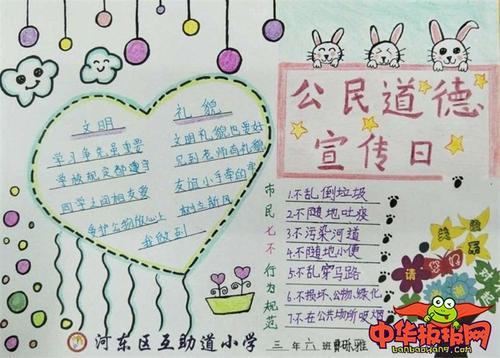 公民道德
宣传日
文明 礼貌
学习争先是重要
学校规定都遵守
同学之间相友爱
爱护公物放心上
我做到
文明礼貌
见到老师
友谊小手牵
树立新风
市民七不行为规范
1.不乱倒垃圾
2.不随地吐痰
3.不污染河道
4.不随地小便
5.不乱穿马路
6.不损坏、公物、绿化
7.不在公共场所吸烟
请
河东区互助道小学
三年六班
中华板报网